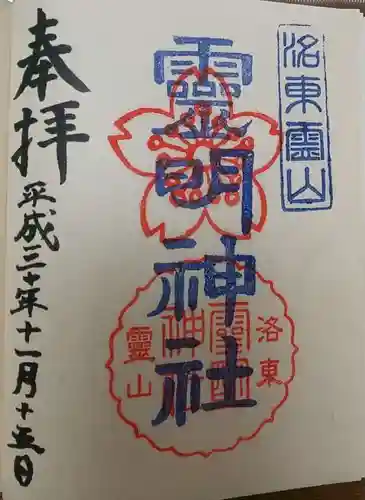 洛東霊山
靈明神社
奉拝
平成三十年十一月十五日
洛東
靈明神社
靈山